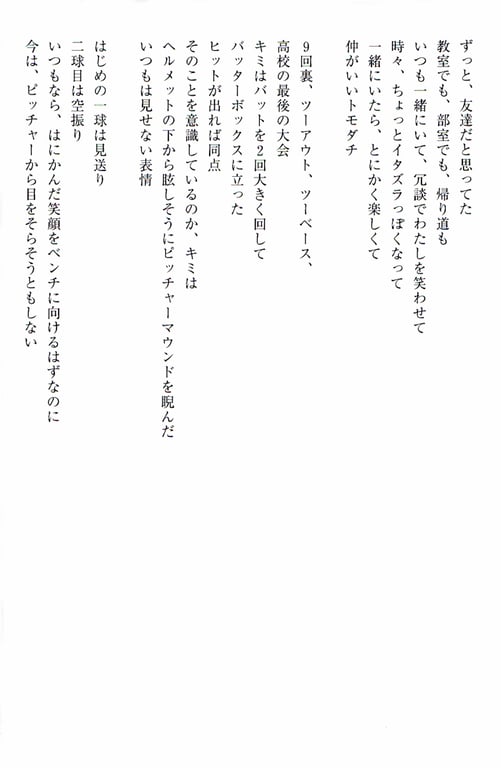 ずっと、友達だと思ってた
教室でも、部室でも、帰り道も
いつも一緒にいて、冗談でわたしを笑わせて
時々、ちょっとイタズラっぽくなって
一緒にいたら、とにかく楽しくて
仲がいいトモダチ
9回裏、ツーアウト、ツーベース、
高校の最後の大会
キミはバットを2回大きく回して
バッターボックスに立った
ヒットが出れば同点
そのことを意識しているのか、キミは
ヘルメットの下から眩しそうにピッチャーマウンドを睨んだ
いつもは見せない表情
はじめの一球は見送り
二球目は空振り
いつもなら、はにかんだ笑顔をベンチに向けるはずなのに
今は、ピッチャーから目をそらそうともしない